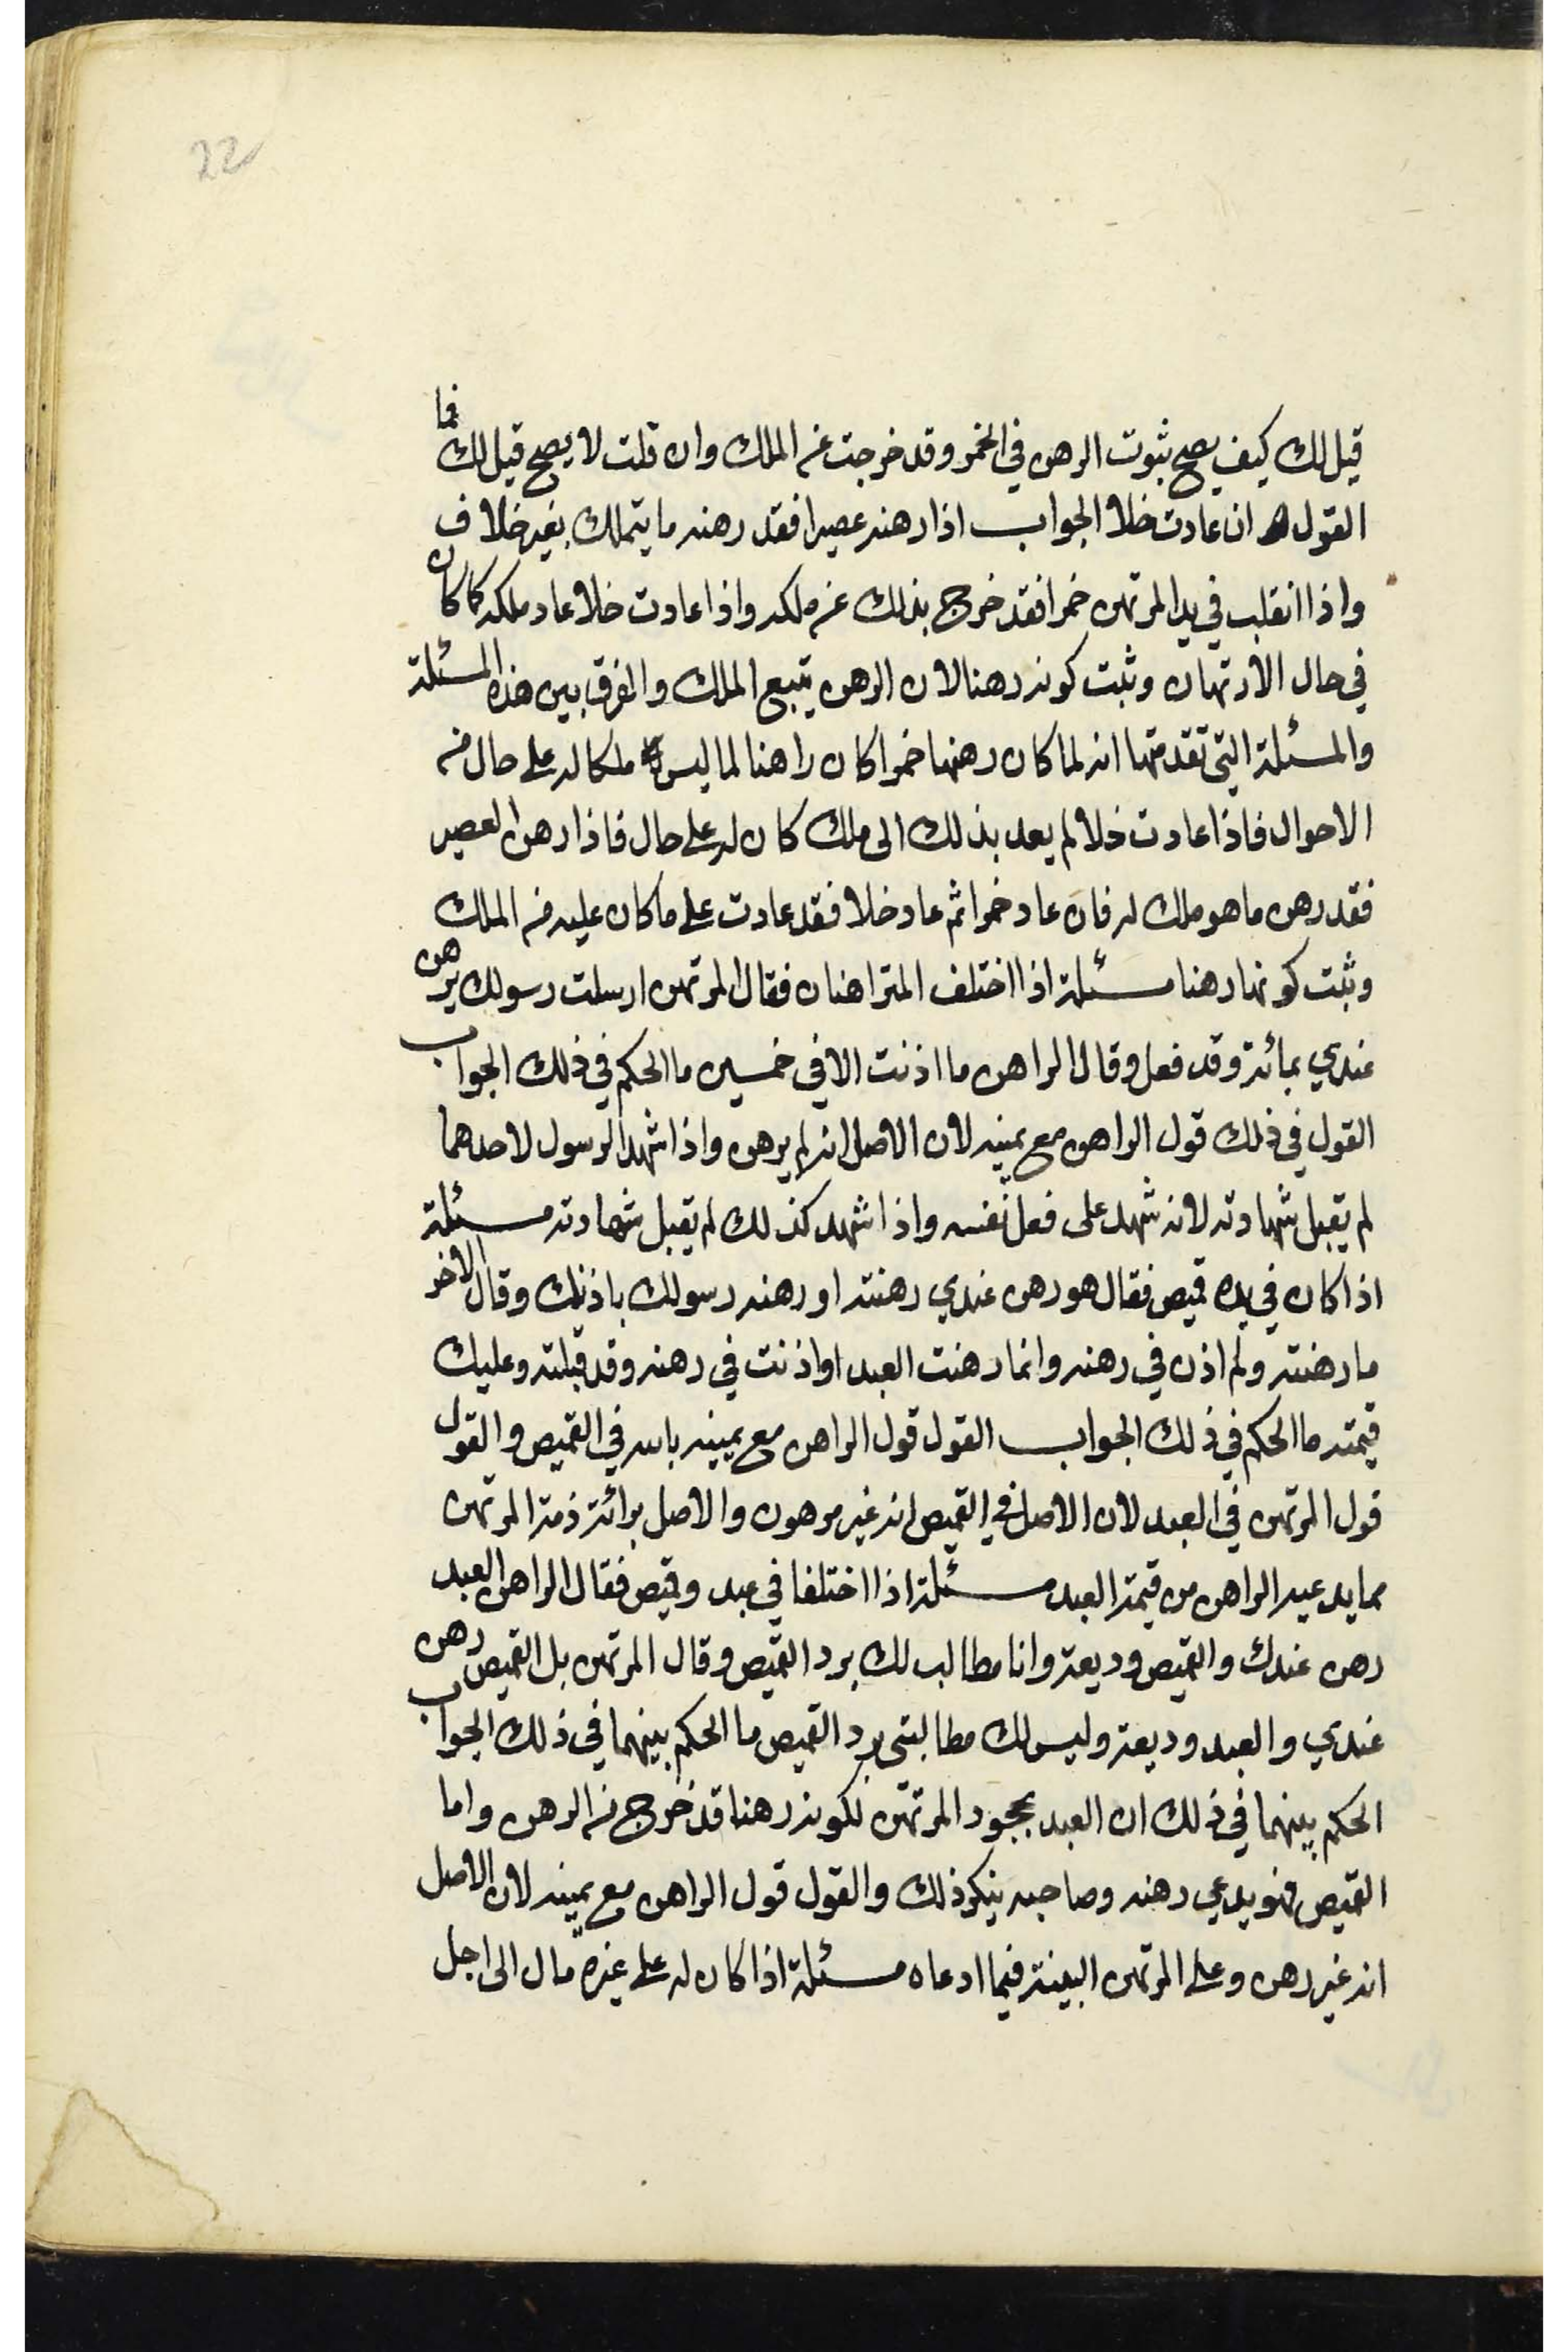 22
قيل لك كيف يصح ثبوت الرهن في الخمر وقد خرجت عن الملك وان قلت لا يصح قيل لك فما
القول ان عادت خلا الجواب اذا رهنه عصيرا فقد رهنه ما يتملك بغير خلاف
واذا انقلب في يد المرتهن خمرا فقد خرج بذلك عن ملكه واذا عادت خلا عاد ملكه كما كان
في حال الارتهان وثبت كونه رهنا لان الرهن يتبع الملك والفرق بين هذه المسئلة
والمسئلة التي تقدمتها انه لما كان رهنها خمرا كان راهنا لما ليس ملكا له على حال من
الاحوال فاذا عادت خلا لم يعد بذلك الى ملك كان له على حال فاذا رهن العصير
فقد رهن ما هو ملك له فان عاد خمرا ثم عاد خلا فقد عادت على ما كان عليه من الملك
وثبت كونها رهنا مسئلة اذا اختلف المتراهنان فقال المرتهن ارسلت رسولك يرهن
عندي بمائة وقد فعل وقال الراهن ما اذنت الا في خمسين ما الحكم في ذلك الجواب
القول في ذلك قول الراهن مع يمينه لان الاصل انه لم يرهن واذا شهد الرسول لاحدهما
لم يقبل شهادته لانه شهد على فعل نفسه واذا شهد كذلك لم يقبل شهادته مسئلة
اذا كان في يده قميص فقال هو رهن عندي رهنته او رهنه رسولك باذنك وقال الاخر
ما رهنته ولم اذن في رهنه وانما رهنت العبد او اذنت في رهنه وقد قبلته وعليك
قيمته ما الحكم في ذلك الجواب القول قول الراهن مع يمينه بالله في القميص والقول
قول المرتهن في العبد لان الاصل في القميص انه غير مرهون والاصل برائة ذمة المرتهن
مما يدعيه الراهن من قيمة العبد مسئلة اذا اختلفا في عبد وقميص فقال الراهن العبد
رهن عندك والقميص وديعة وانا مطالب لك برد القميص وقال المرتهن بل القميص رهن
عندي والعبد وديعة وليس لك مطالبتي برد القميص ما الحكم بينهما في ذلك الجواب
الحكم بينهما في ذلك ان العبد بجحود المرتهن لكونه رهنا قد خرج من الرهن واما
القميص فهو يدعي رهنه وصاحبه ينكر ذلك والقول قول الراهن مع يمينه لان الاصل
انه غير رهن وعلى المرتهن البينة فيما ادعاه مسئلة اذا كان له على غيره مال الى اجل